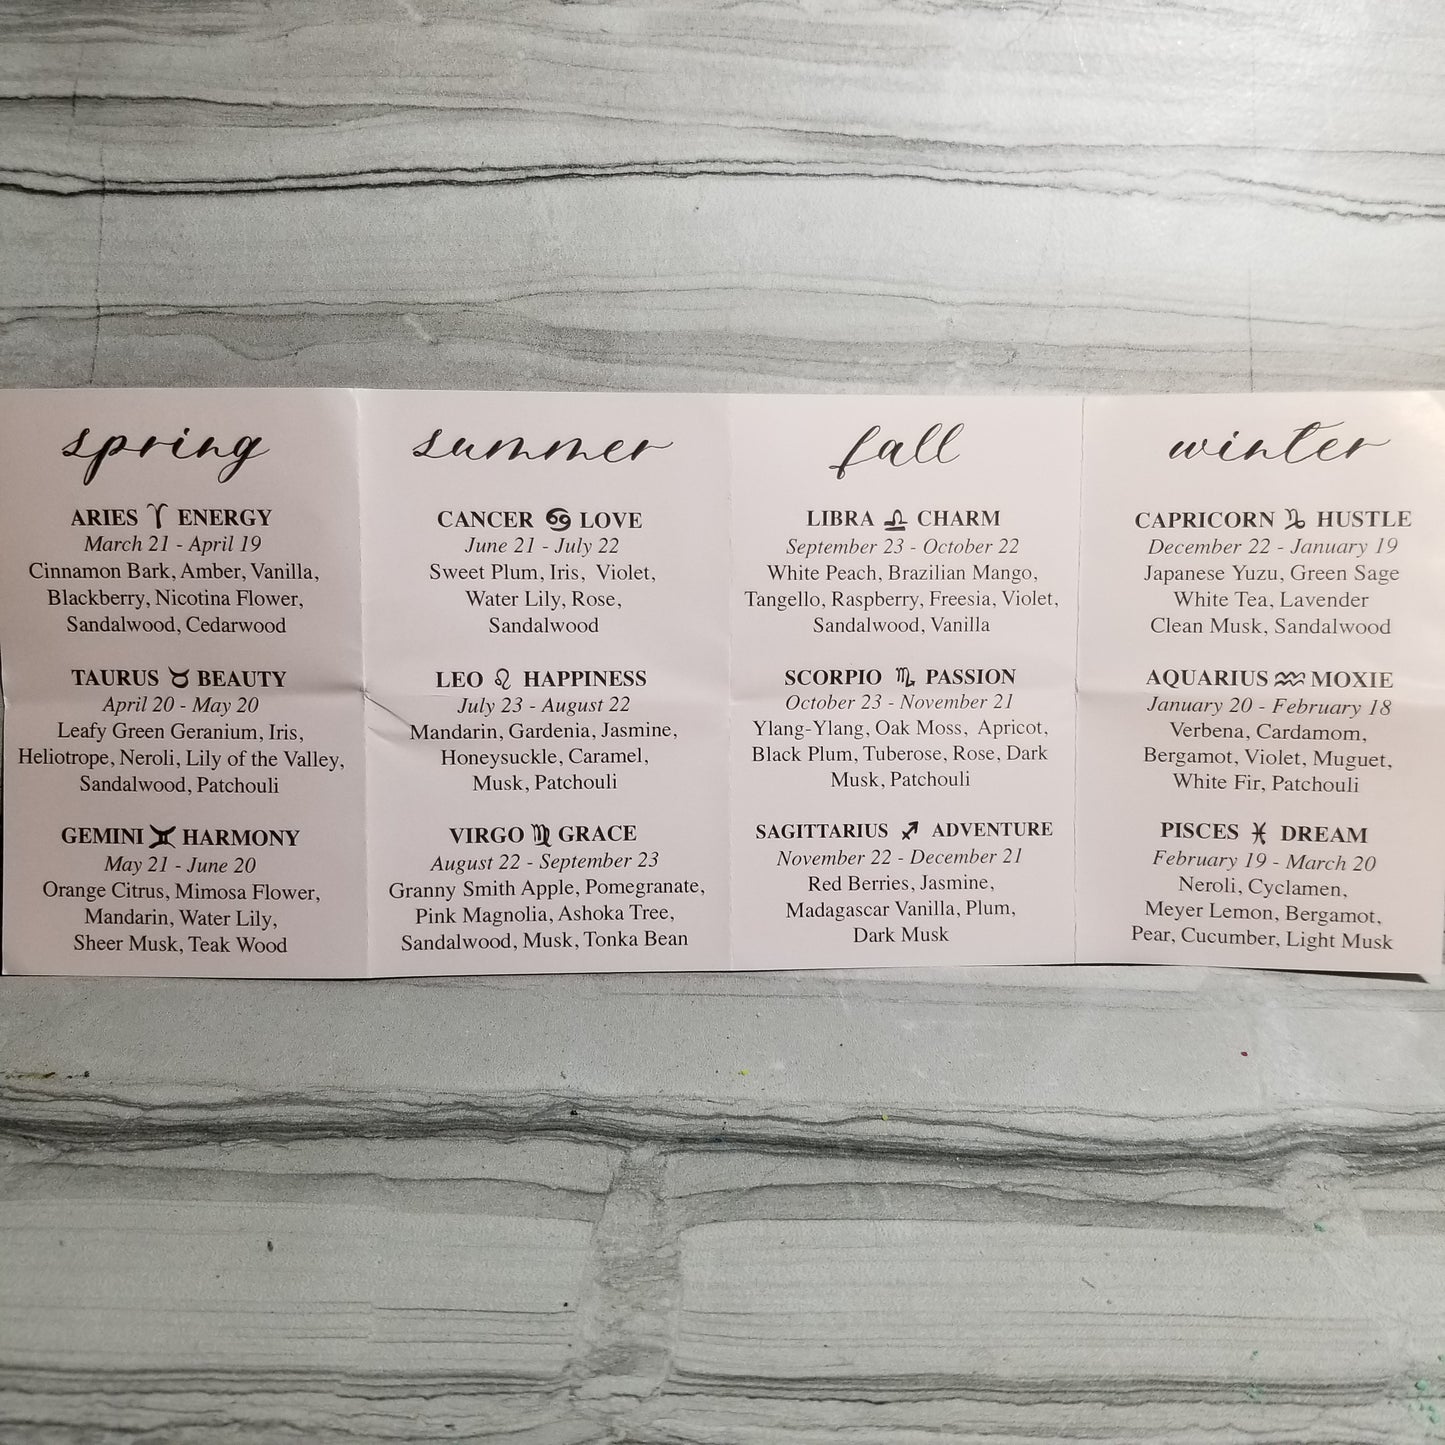 spring
ARIES ♈ ENERGY
March 21 - April 19
Cinnamon Bark, Amber, Vanilla,
Blackberry, Nicotina Flower,
Sandalwood, Cedarwood
TAURUS ♉ BEAUTY
April 20 - May 20
Leafy Green Geranium, Iris,
Heliotrope, Neroli, Lily of the Valley,
Sandalwood, Patchouli
GEMINI ♊ HARMONY
May 21 - June 20
Orange Citrus, Mimosa Flower,
Mandarin, Water Lily,
Sheer Musk, Teak Wood
summer
CANCER ♋ LOVE
June 21 - July 22
Sweet Plum, Iris, Violet,
Water Lily, Rose,
Sandalwood
LEO ♌ HAPPINESS
July 23 - August 22
Mandarin, Gardenia, Jasmine,
Honeysuckle, Caramel,
Musk, Patchouli
VIRGO ♍ GRACE
August 22 - September 23
Granny Smith Apple, Pomegranate,
Pink Magnolia, Ashoka Tree,
Sandalwood, Musk, Tonka Bean
fall
LIBRA ♎ CHARM
September 23 - October 22
White Peach, Brazilian Mango,
Tangello, Raspberry, Freesia, Violet,
Sandalwood, Vanilla
SCORPIO ♏ PASSION
October 23 - November 21
Ylang-Ylang, Oak Moss, Apricot,
Black Plum, Tuberose, Rose, Dark
Musk, Patchouli
SAGITTARIUS ♐ ADVENTURE
November 22 - December 21
Red Berries, Jasmine,
Madagascar Vanilla, Plum,
Dark Musk
winter
CAPRICORN ♑ HUSTLE
December 22 - January 19
Japanese Yuzu, Green Sage
White Tea, Lavender
Clean Musk, Sandalwood
AQUARIUS ♒ MOXIE
January 20 - February 18
Verbena, Cardamom,
Bergamot, Violet, Muguet,
White Fir, Patchouli
PISCES ♓ DREAM
February 19 - March 20
Neroli, Cyclamen,
Meyer Lemon, Bergamot,
Pear, Cucumber, Light Musk